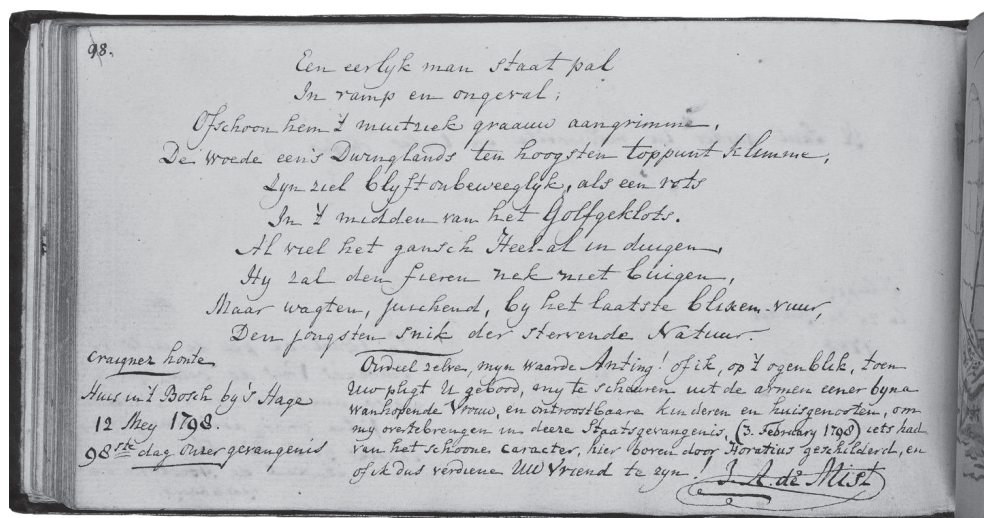 98.
Een eerlyk man staat pal
In ramp en ongeval;
Ofschoon hem 't muitziek graauw aangrimme,
De woede eens Dwinglands ten hoogsten toppunt klimme,
Zyn ziel blyft onbeweeglyk, als een rots
In 't midden van het Golfgeklots.
Al viel het gansch Heel-al in duigen,
Hy zal den fieren nek niet buigen,
Maar wagten, juichend, by het laatste blixem-vuur,
Den jongsten snik der stervende Natuur.
craignez honte
Huis in 't Bosch by 's Hage
12 Mey 1798.
98ste dag onzer gevangenis
Oordeel zelve, myn waarde Anting! of ik, op 't ogenblik, toen
Uw pligt U gebood, my te scheuren uit de armen eener byna
wanhopende Vrouw, en ontroostbaare kinderen en huisgenoten, om
my overtebrengen in deeze Staatsgevangenis, (3. February 1798) iets had
van het schoone caracter, hier boven door Horatius geschilderd, en
of ik dus verdiene UW Vriend te zyn!
J. A. de Mist